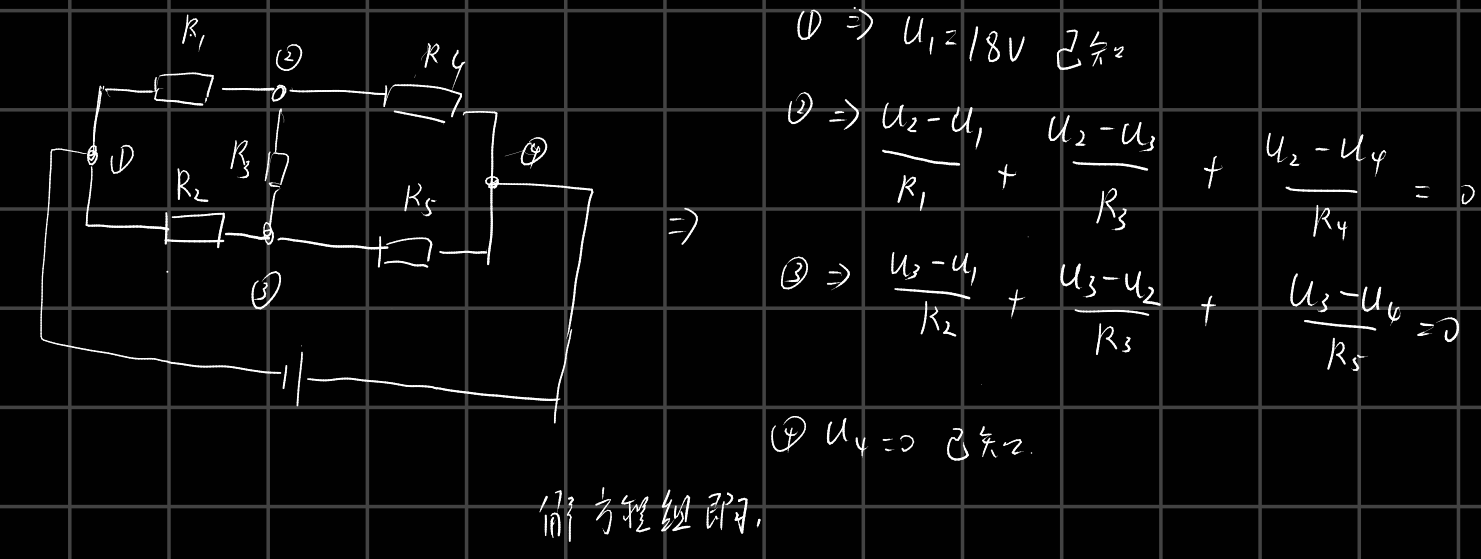 R₁
②
R₄
①
R₃
④
R₂
R₅
③
⇒
① ⇒ U₁=18V 已知
② ⇒ (U₂-U₁)/R₁ + (U₂-U₃)/R₃ + (U₂-U₄)/R₄ = 0
③ ⇒ (U₃-U₁)/R₂ + (U₃-U₂)/R₃ + (U₃-U₄)/R₅ =0
④ U₄=0 已知.
解方程组即可.